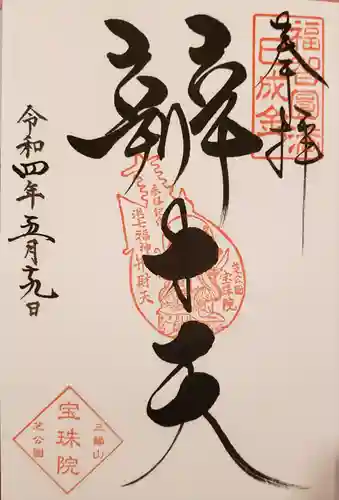 奉拝
福智圓満
巳成金
辨才天
港七福神
弁財天
芝公園
宝珠院
令和四年五月九日
三縁山
宝珠院
芝公園